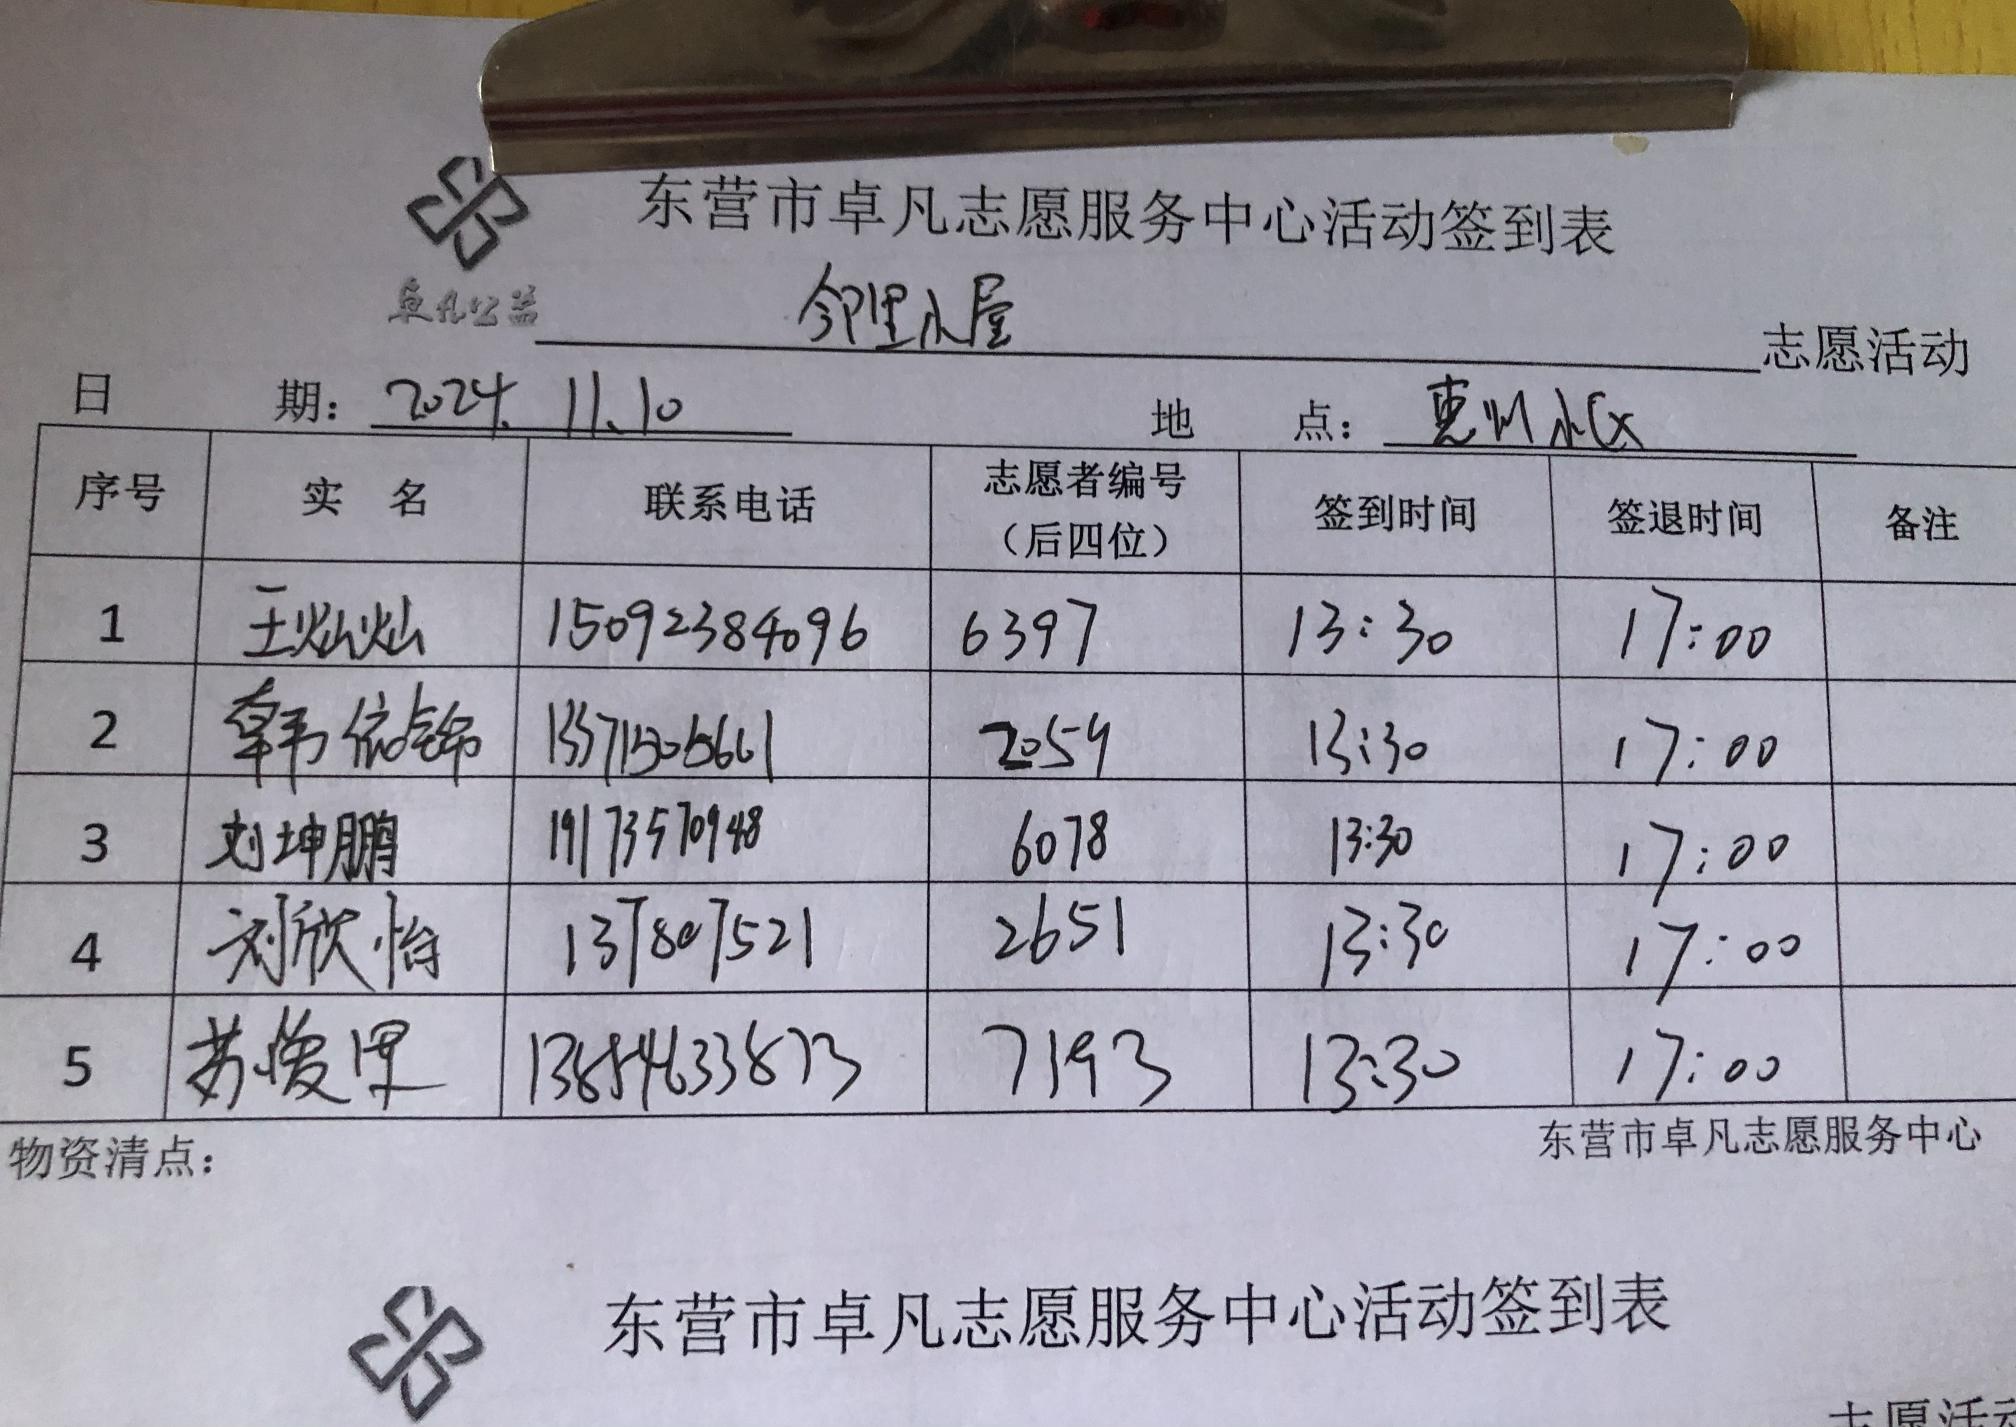 东营市卓凡志愿服务中心活动签到表
卓凡公益
邻里小屋 志愿活动
日 期： 2024. 11.10 地 点： 惠州小区
序号 实 名 联系电话 志愿者编号（后四位） 签到时间 签退时间 备注
1 王灿灿 15092384096 6397 13:30 17:00
2 韩依锦 2059 13:30 17:00
3 刘坤鹏 19173570948 6078 13:30 17:00
4 刘欣怡 137807521 2651 13:30 17:00
5 苏 13854633873 7193 13:30 17:00
物资清点： 东营市卓凡志愿服务中心
东营市卓凡志愿服务中心活动签到表
志愿活动